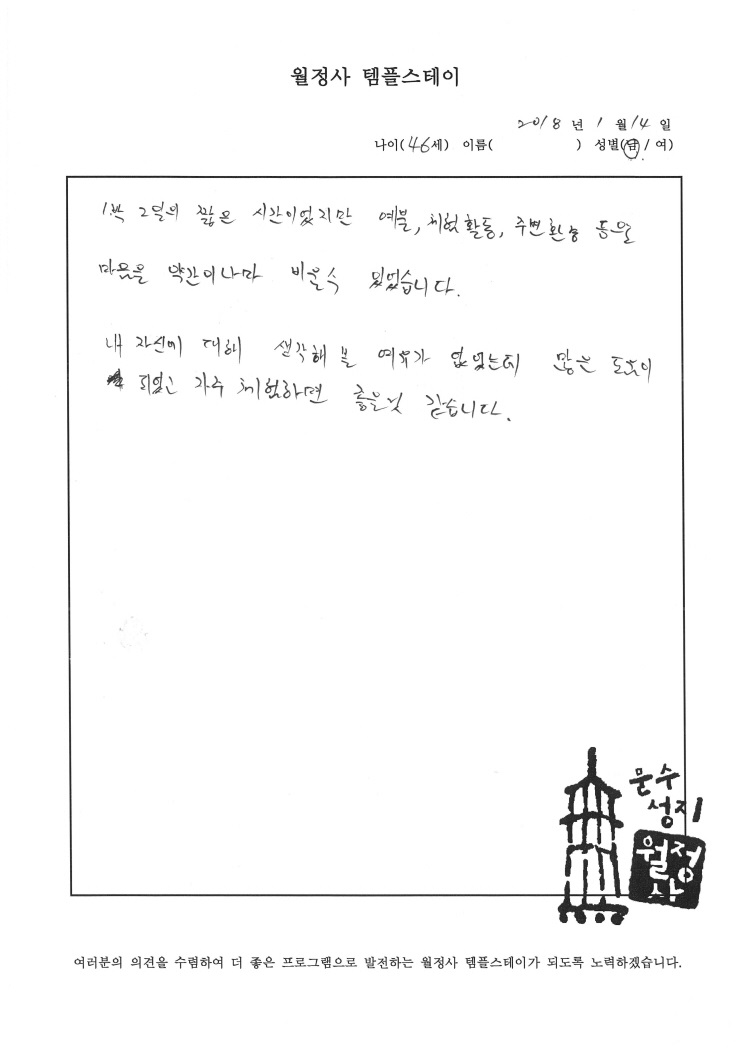 월정사 템플스테이
2018 년 1 월 14 일
나이(46세) 이름( ) 성별(남/여)
1박 2일의 짧은 시간이었지만 예불, 체험활동, 주변환능 등을
마음을 약간이나마 비울수 있었습니다.
내 자신에 대해 생각해 볼 여유가 없었는데 많은 도움이
되었고 자주 체험하면 좋을것 같습니다.
문수
성지
월정
사
여러분의 의견을 수렴하여 더 좋은 프로그램으로 발전하는 월정사 템플스테이가 되도록 노력하겠습니다.